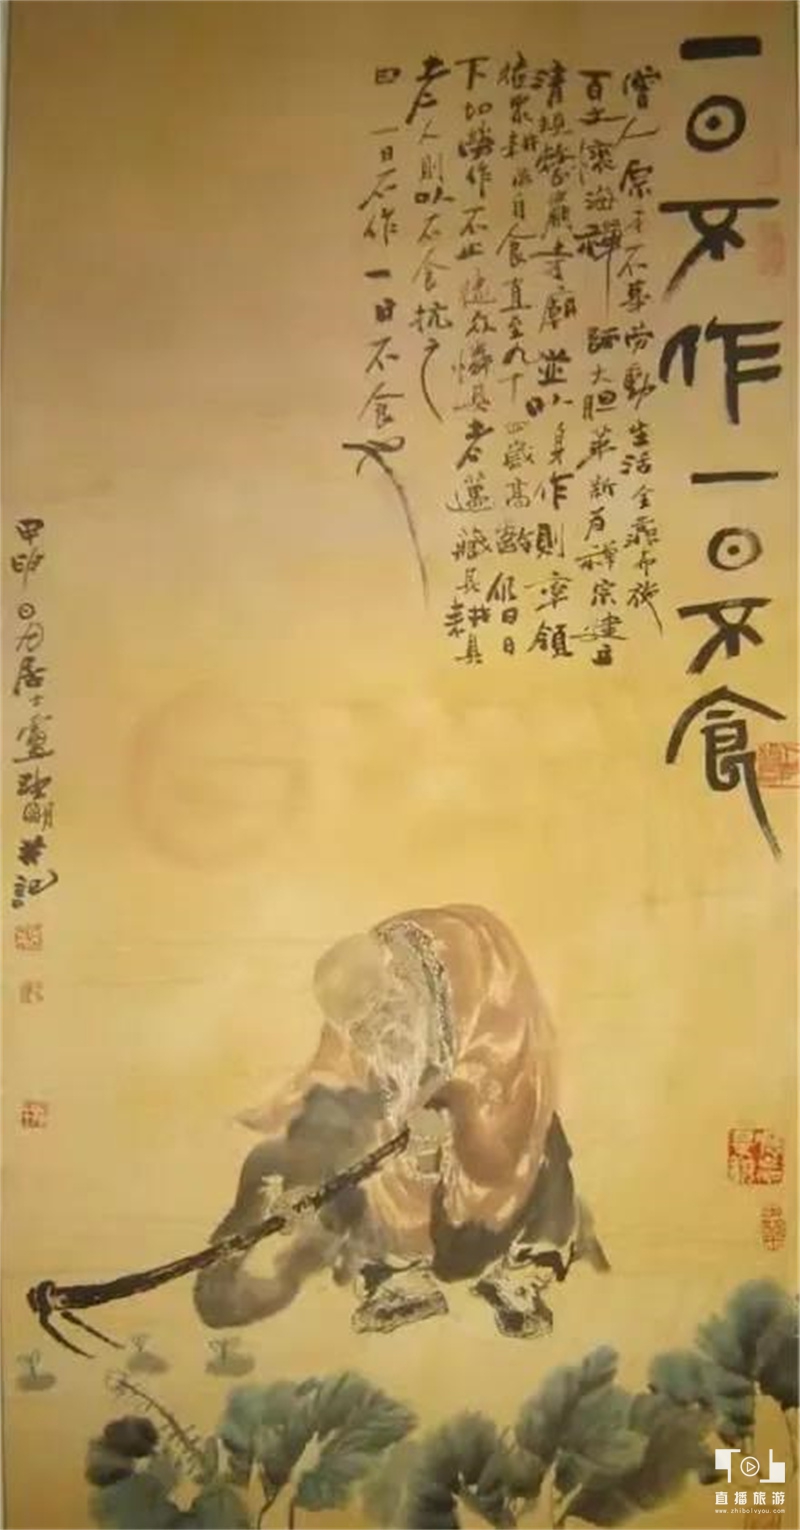 一日不作一日不食
僧人原本不事劳動生活全靠布施
百丈懷海禪師大胆革新为禪宗建立
清規營叢寺廟並以身作則率领
徒眾耕作自食直至九十四歲高齡仍日日
下田勞作不止徒众憐其老邁藏其耕具
老人則以不食抗之
曰一日不作一日不食也
甲申日月居士盧 明并記
直播旅游
www.zhibolvyou.com